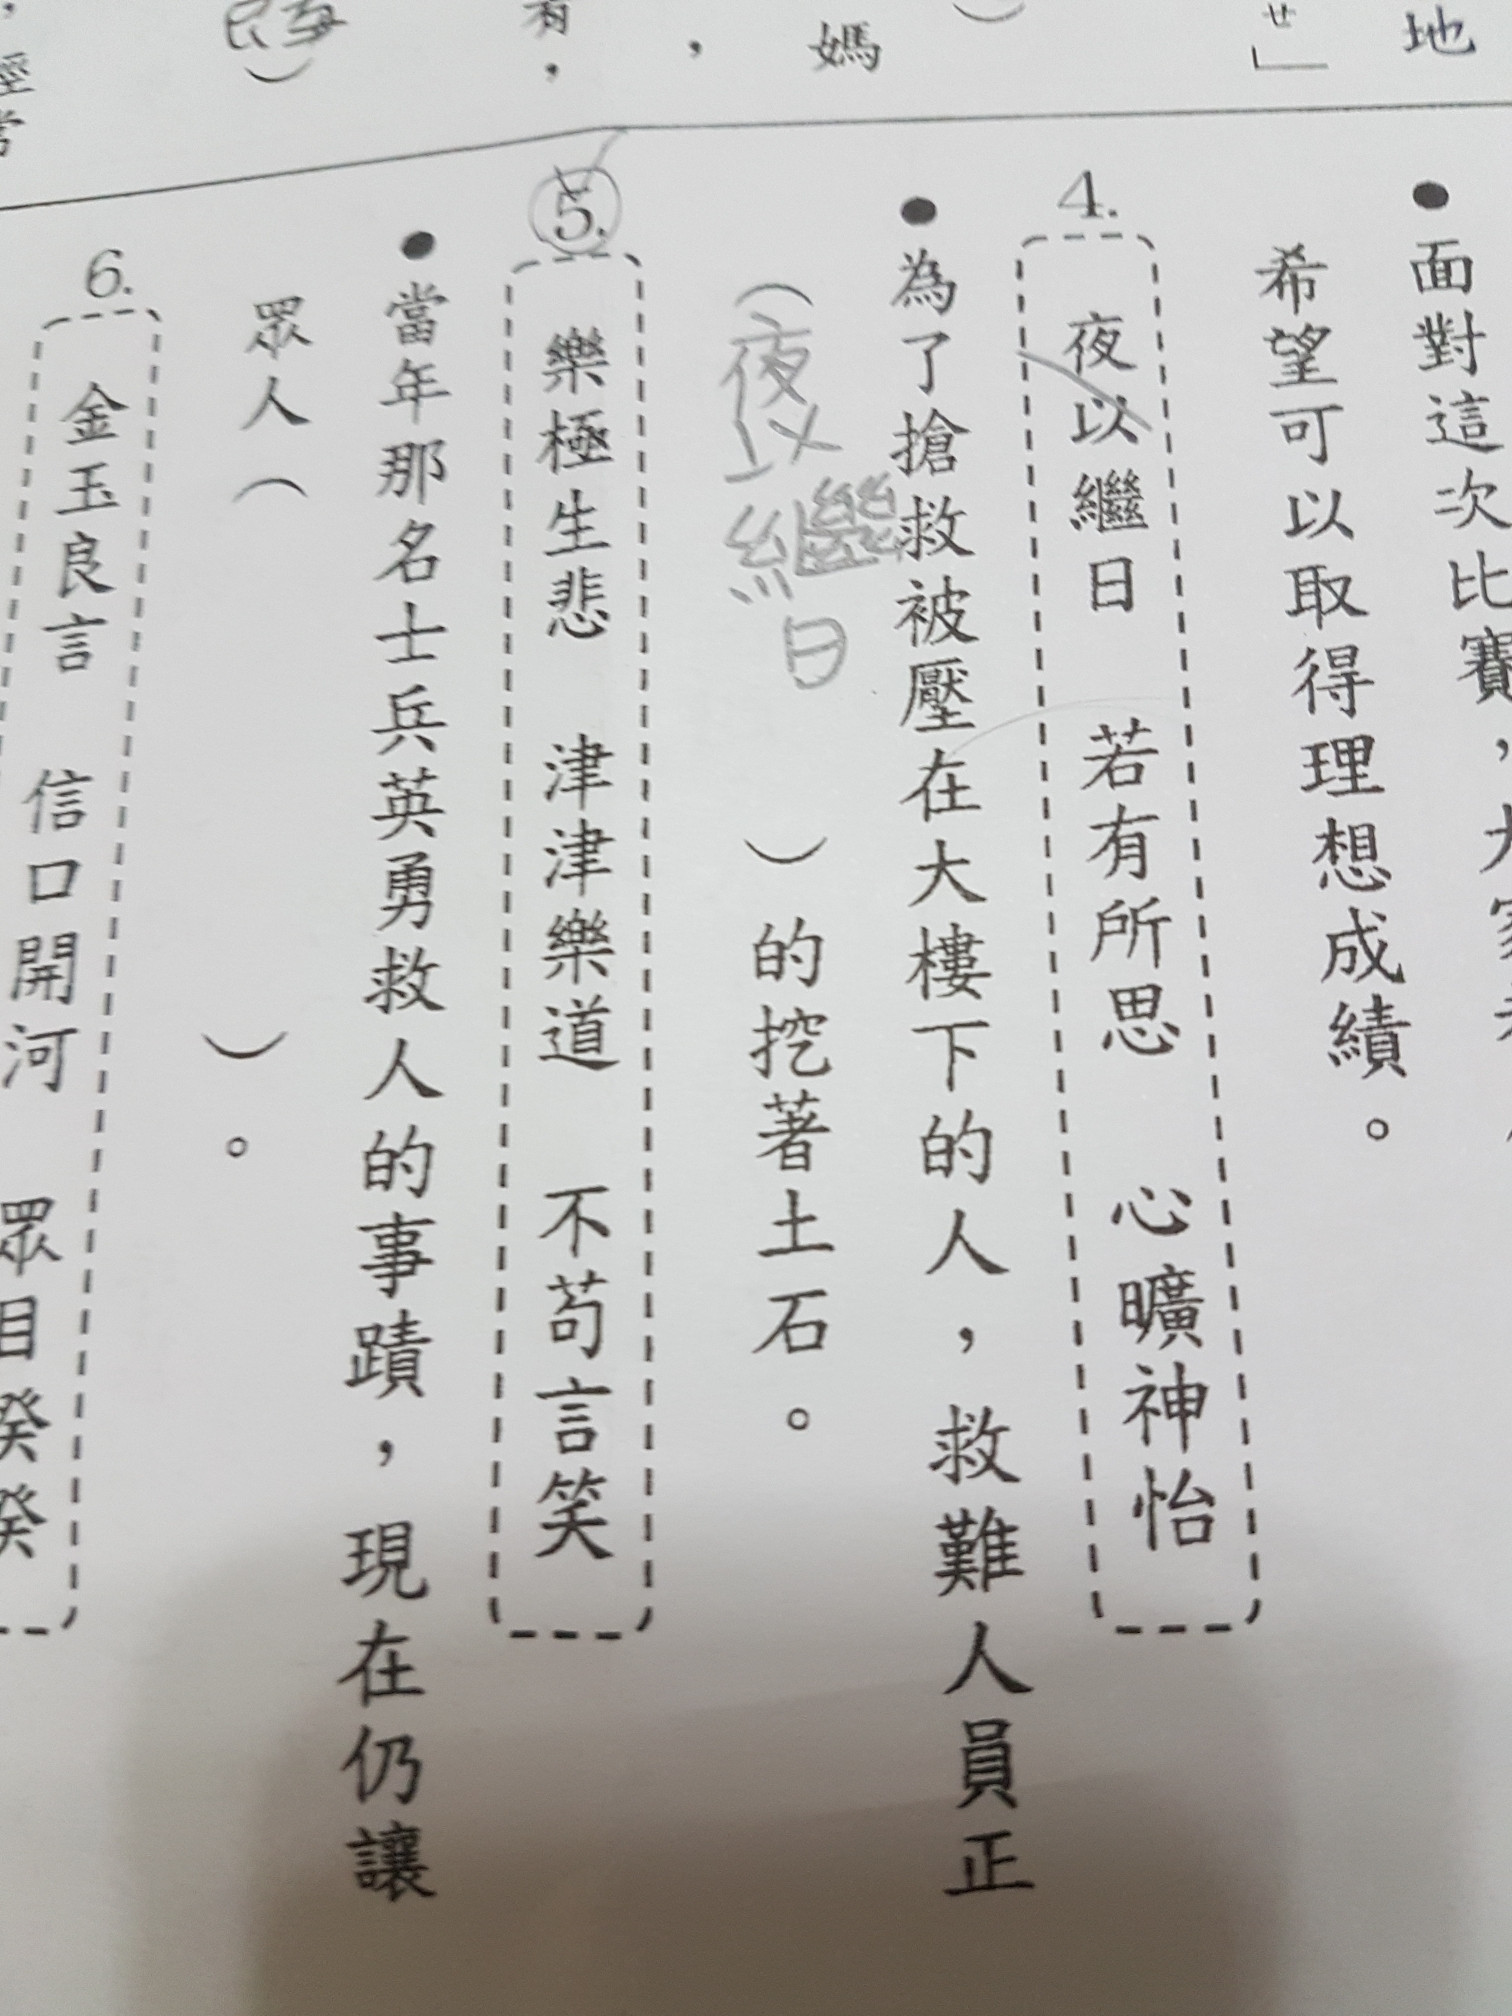 地
ㄝ」
）
媽
，
有，
）
經常
●面對這次比賽，大家
希望可以取得理想成績。
4.
夜以繼日　若有所思　心曠神怡
●為了搶救被壓在大樓下的人，救難人員正
（夜以繼日）的挖著土石。
5.
樂極生悲　津津樂道　不苟言笑
●當年那名士兵英勇救人的事蹟，現在仍讓
眾人（　　）。
6.
金玉良言　信口開河　眾目睽睽